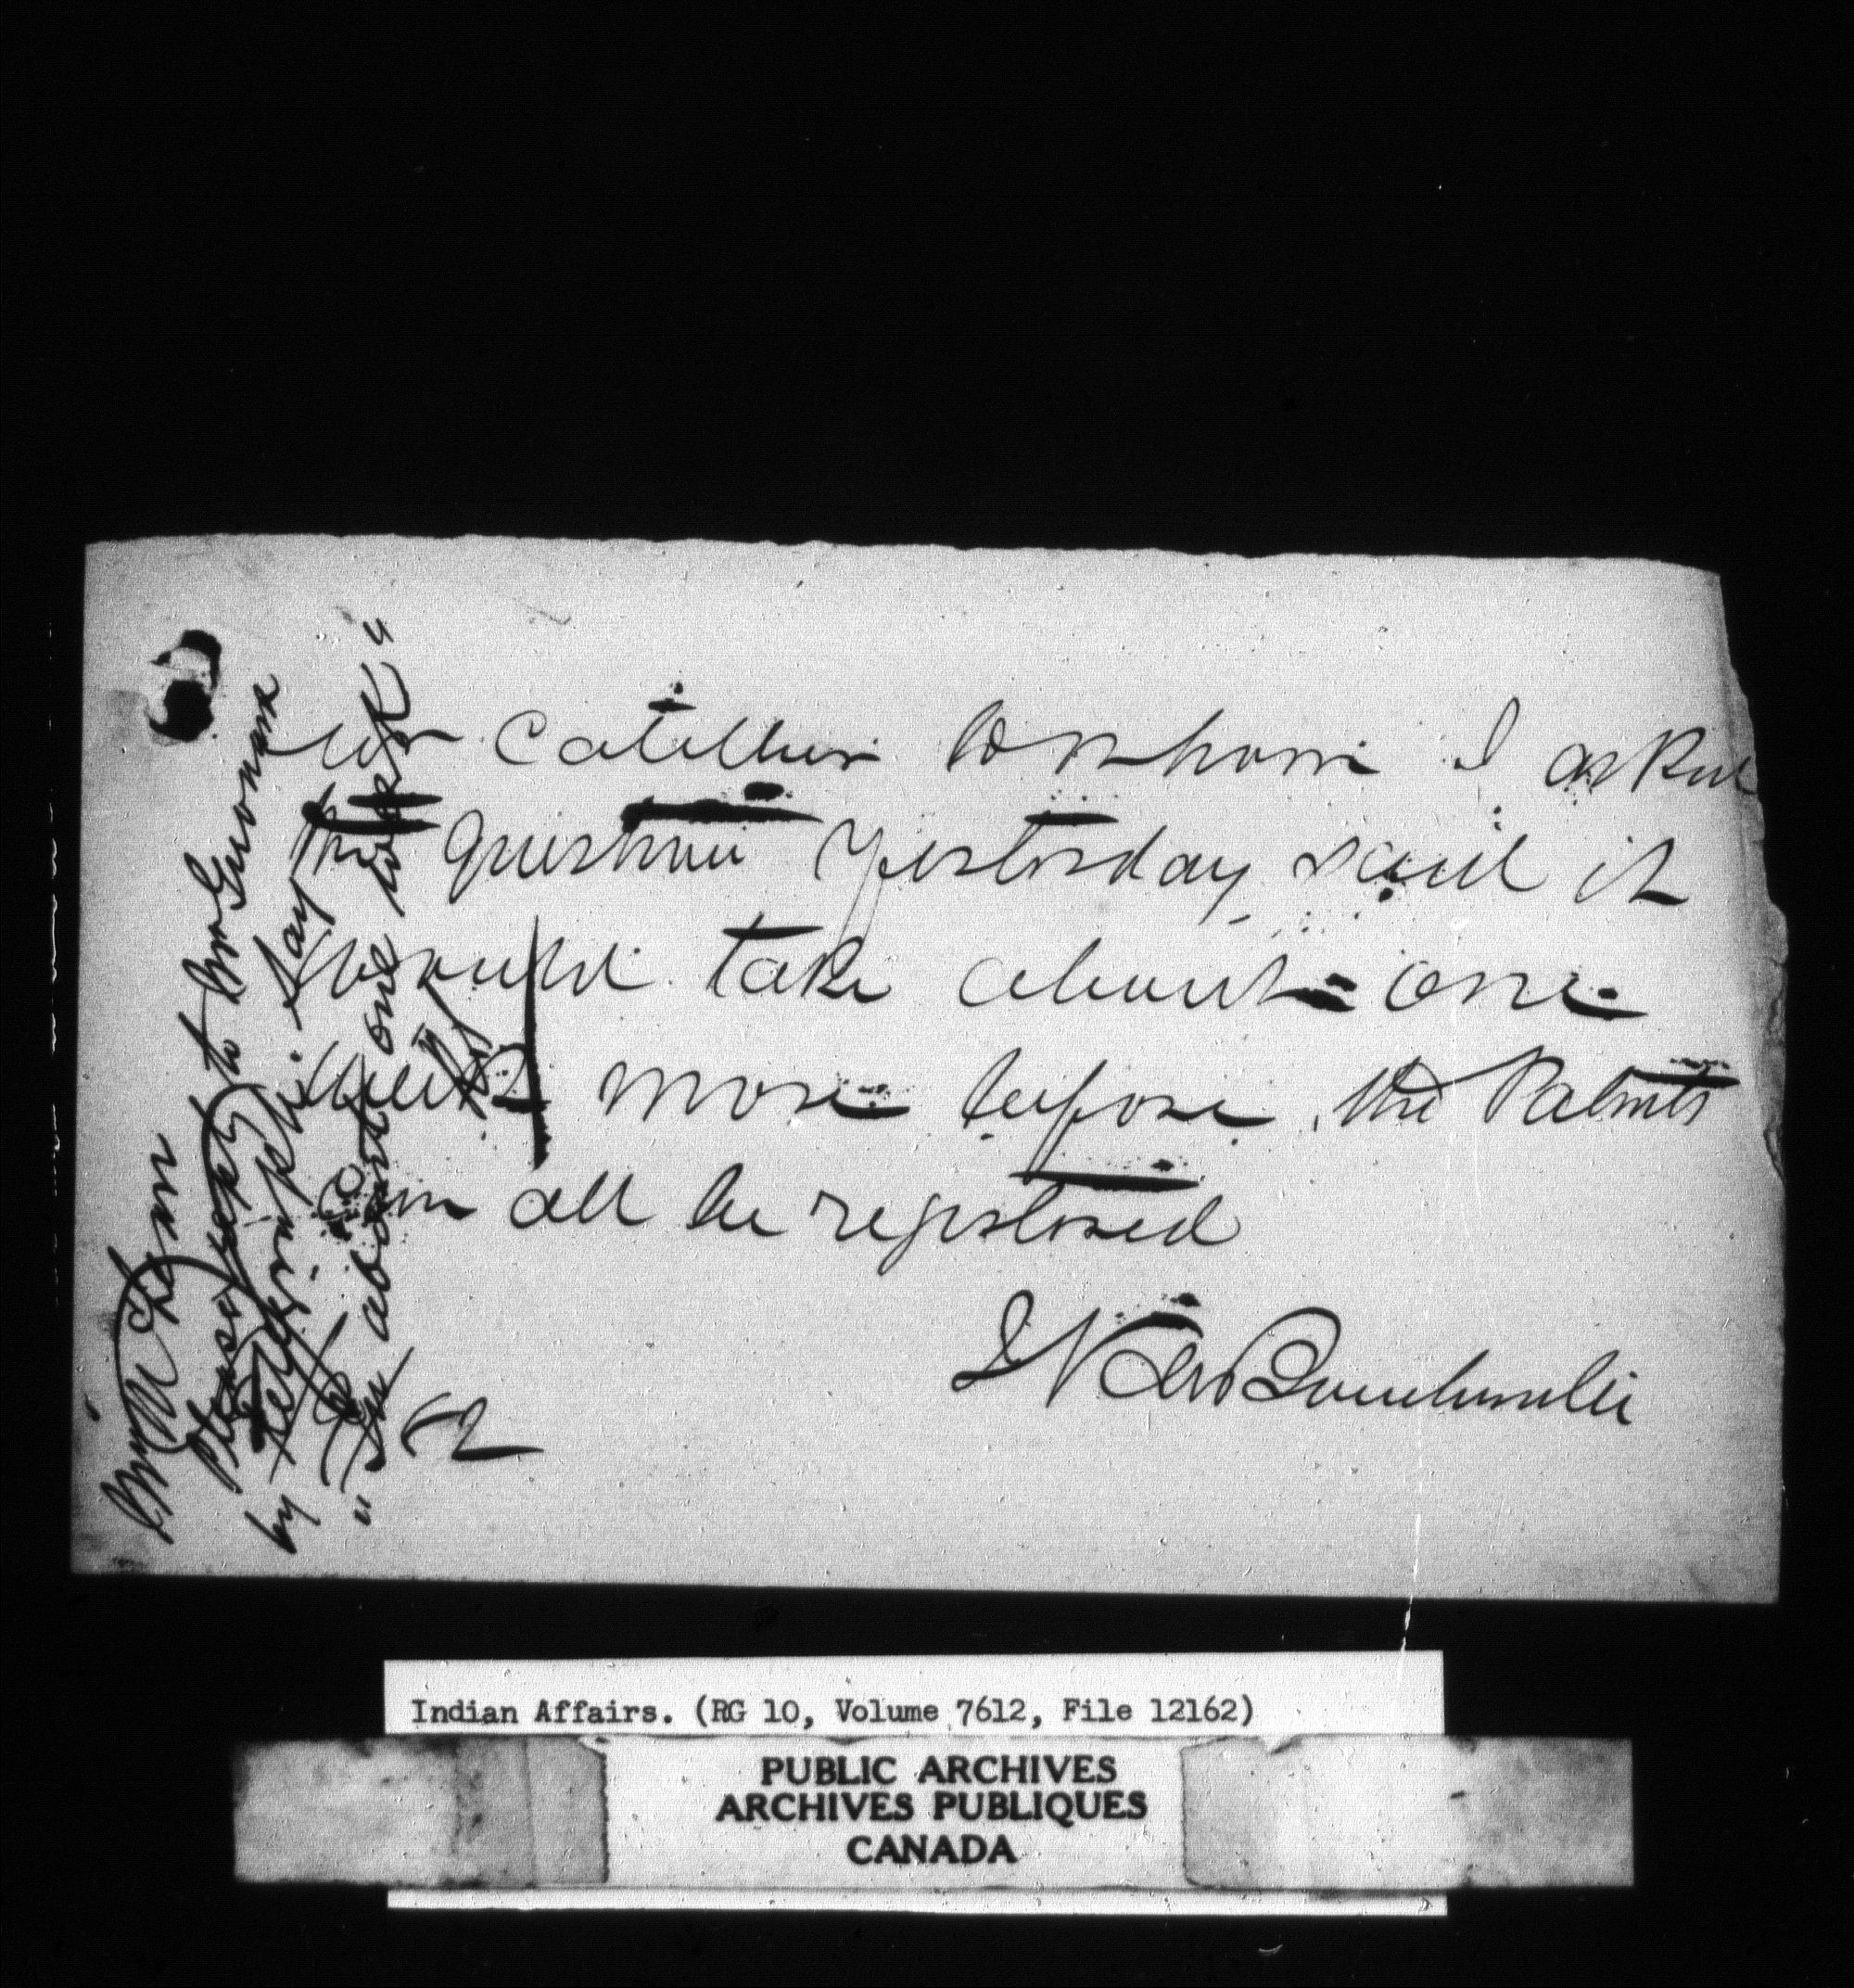 Mr Catellier to whom I asked
the question yesterday said it
would take about one
week more before the Patents
can all be registered
Please reply to
by telegraph: say
"In about one week"
Indian Affairs. (RG 10, Volume 7612, File 12162)
PUBLIC ARCHIVES
ARCHIVES PUBLIQUES
CANADA